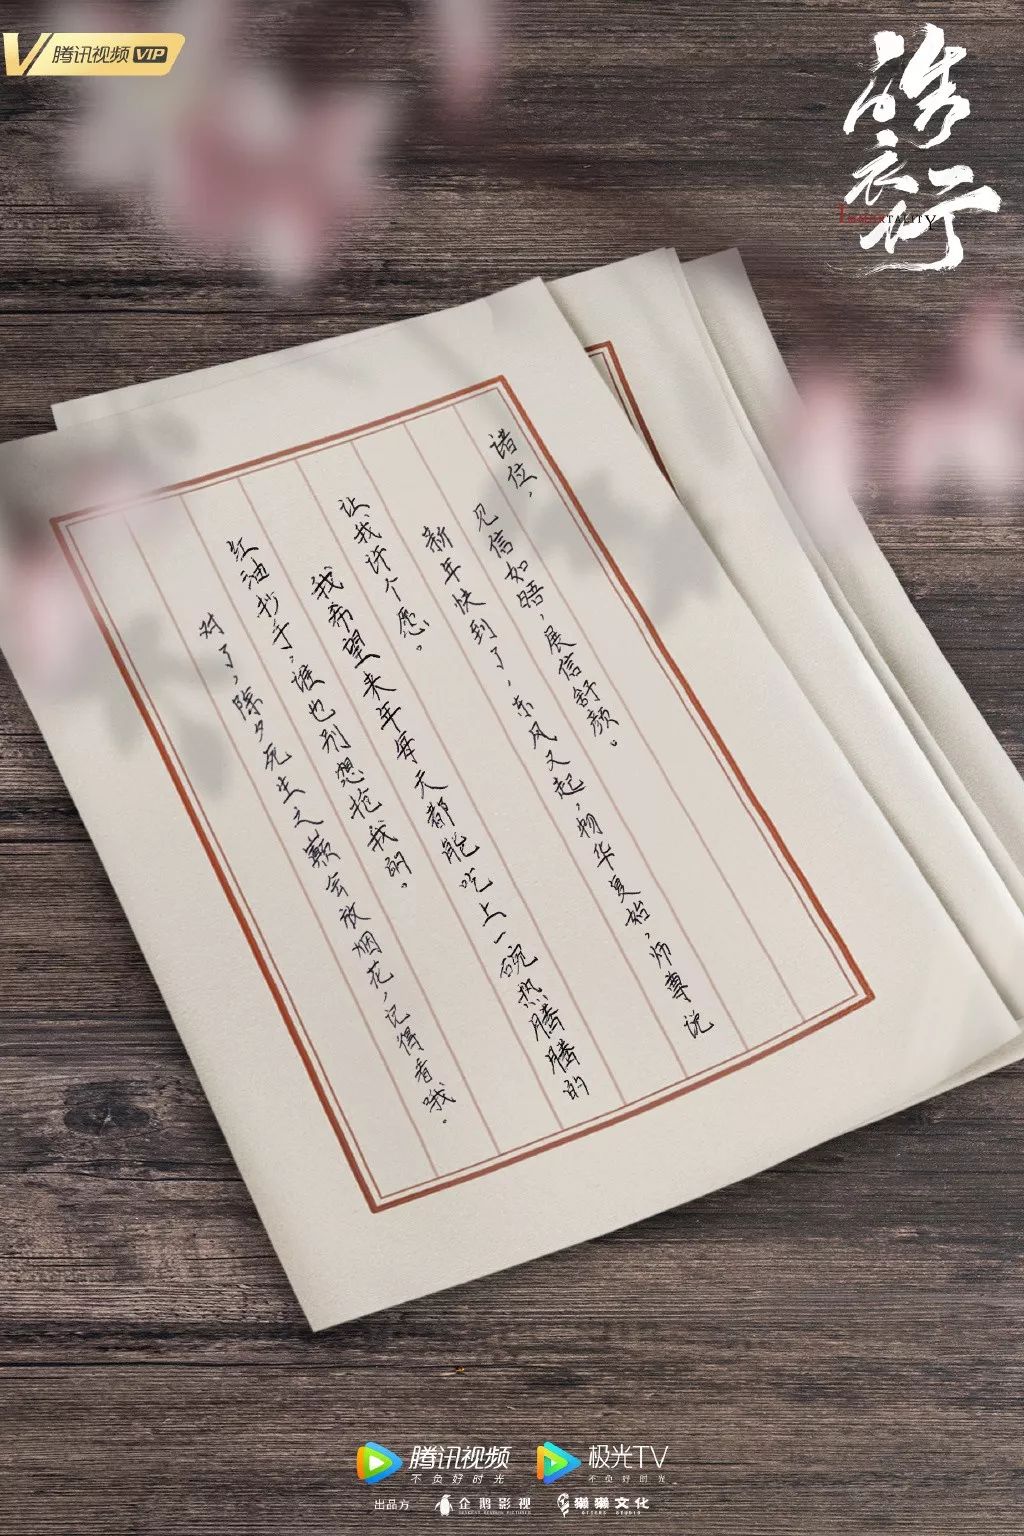 腾讯视频 VIP
皓衣行
IMMORTALITY
诸位，
见信如晤，展信舒颜。
新年快到了，东风又起，物华复始，师尊说
让我许个愿。
我希望来年每天都能吃上一碗热腾腾的
红油抄手，谁也别想抢我的。
对了，除夕死生之巅会放烟花，记得看哦。
腾讯视频
不负好时光
极光TV
不负好时光
出品方
企鹅影视
獭獭文化